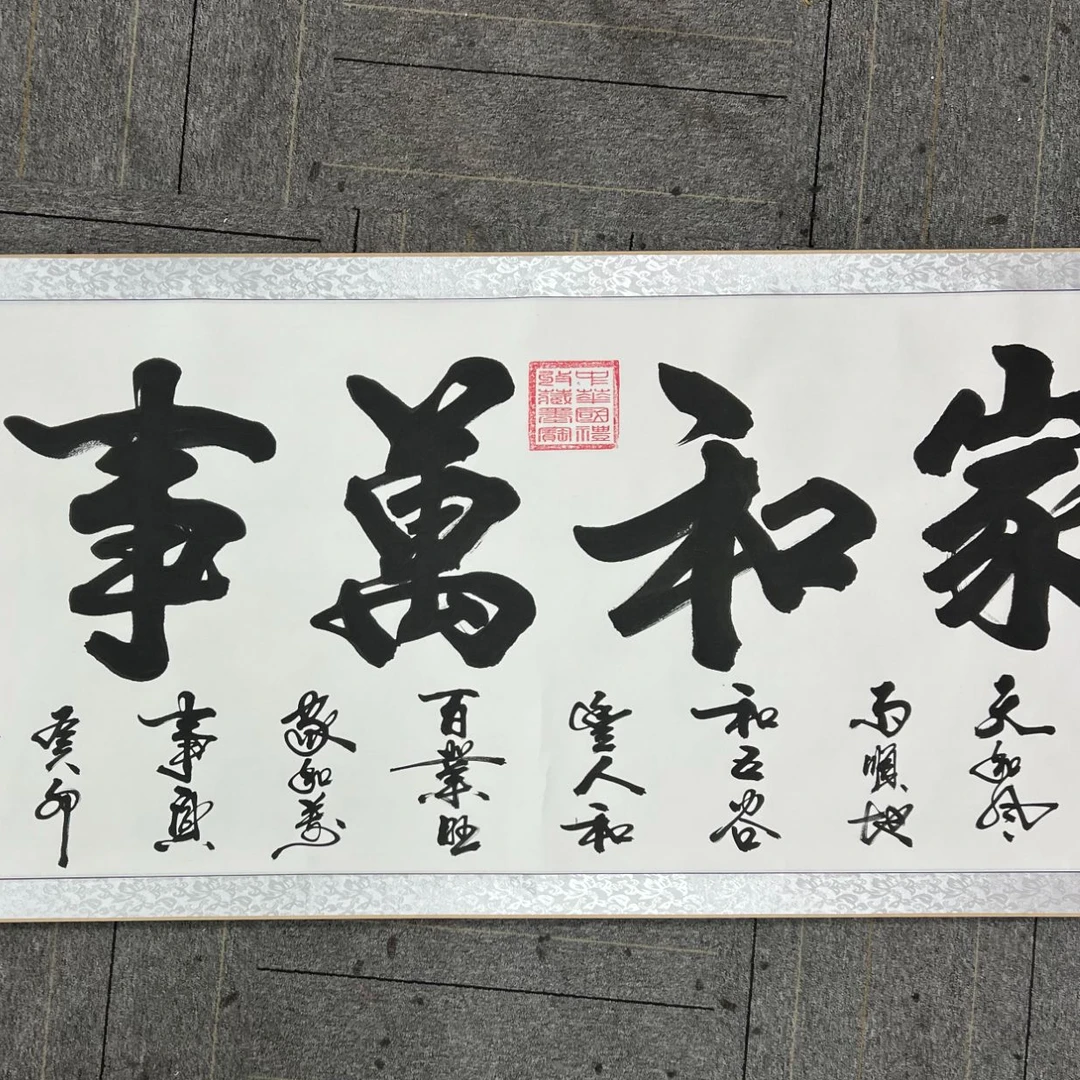 家和萬事
中華國禮
收藏墨寶
天和风
雨順地
和五谷
豐人和
百業旺
家和萬
事興
癸卯